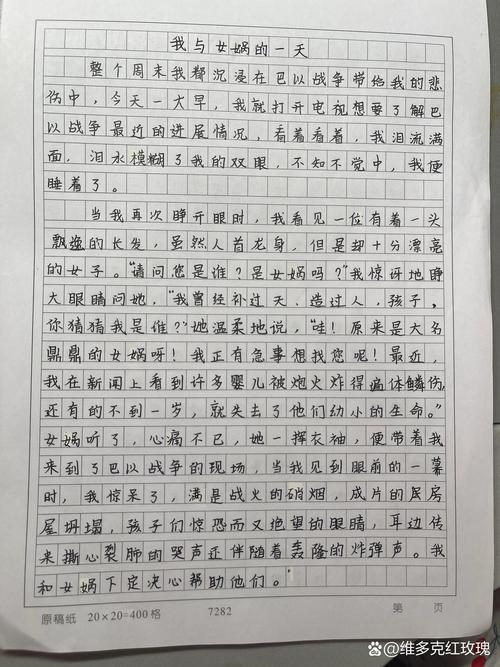 我与女娲的一天
整个周末我都沉浸在巴以战争带给我的悲
伤中,今天一大早,我就打开电视想要了解巴
以战争最近的进展情况,看着看着,我泪流满
面,泪水模糊了我的双眼,不知不觉中,我便
睡着了。
当我再次睁开眼时,我看见一位有着一头
飘逸的长发,虽然人首龙身,但是却十分漂亮
的女子。“请问您是谁?是女娲吗?”我惊讶地睁
大眼睛问她,“我曾经补过天、造过人,孩子,
你猜猜我是谁?”她温柔地说,“哇!原来是大名
鼎鼎的女娲呀!我正有急事想找您呢!最近,
我在新闻上看到许多婴儿被炮火炸得遍体鳞伤,
还有的不到一岁,就失去了他们幼小的生命。”
女娲听了,心痛不已,她一挥衣袖,便带着我
来到了巴以战争的现场,当我见到眼前的一幕
时,我惊呆了,满是战火的硝烟,成片的居房
屋坍塌,孩子们惊恐而又绝望的眼睛,耳边传
来撕心裂肺的哭声还伴随着轰隆的炸弹声。我
和女娲下定决心帮助他们。
原稿纸 20×20=400格 7282 第 页
@维多克红玫瑰